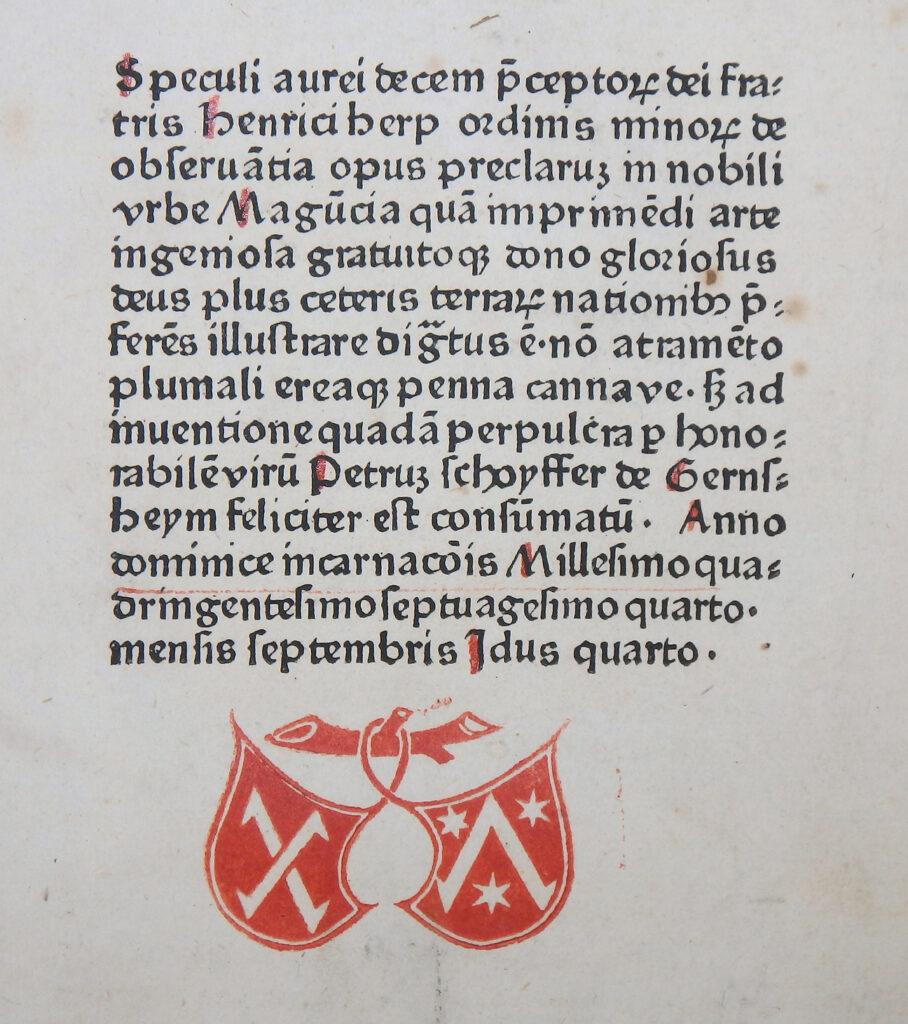 Speculi aurei decem p̄ceptoꝝ dei fra⸗
tris Henrici herp ordinis minoꝝ de
obſeruãtia opus preclaruꝫ in nobili
vrbe Magūcia quā imprimēdi arte
ingenioſa gratuitoqꝫ dono glorioſus
deus plus ceteris terraꝝ nationibꝫ p̄⸗
ferēs illuſtrare dig̃tus ē·nō atramēto
plumali ereaqꝫ penna cannave·ſꝫ ad
inuentione quadā perpulcra ꝑ hono⸗
rabilē virū Petruꝫ ſchoyffer de Gernſ⸗
heym feliciter eſt conſūmatū· Anno
dominice incarnacōis Milleſimo qua⸗
dringenteſimo ſeptuageſimo quarto·
menſis ſeptembris Idus quarto·